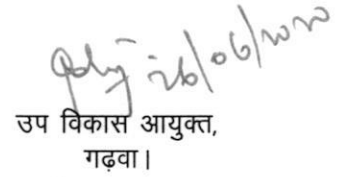 26/06/2020
उप विकास आयुक्त,
गढ़वा।